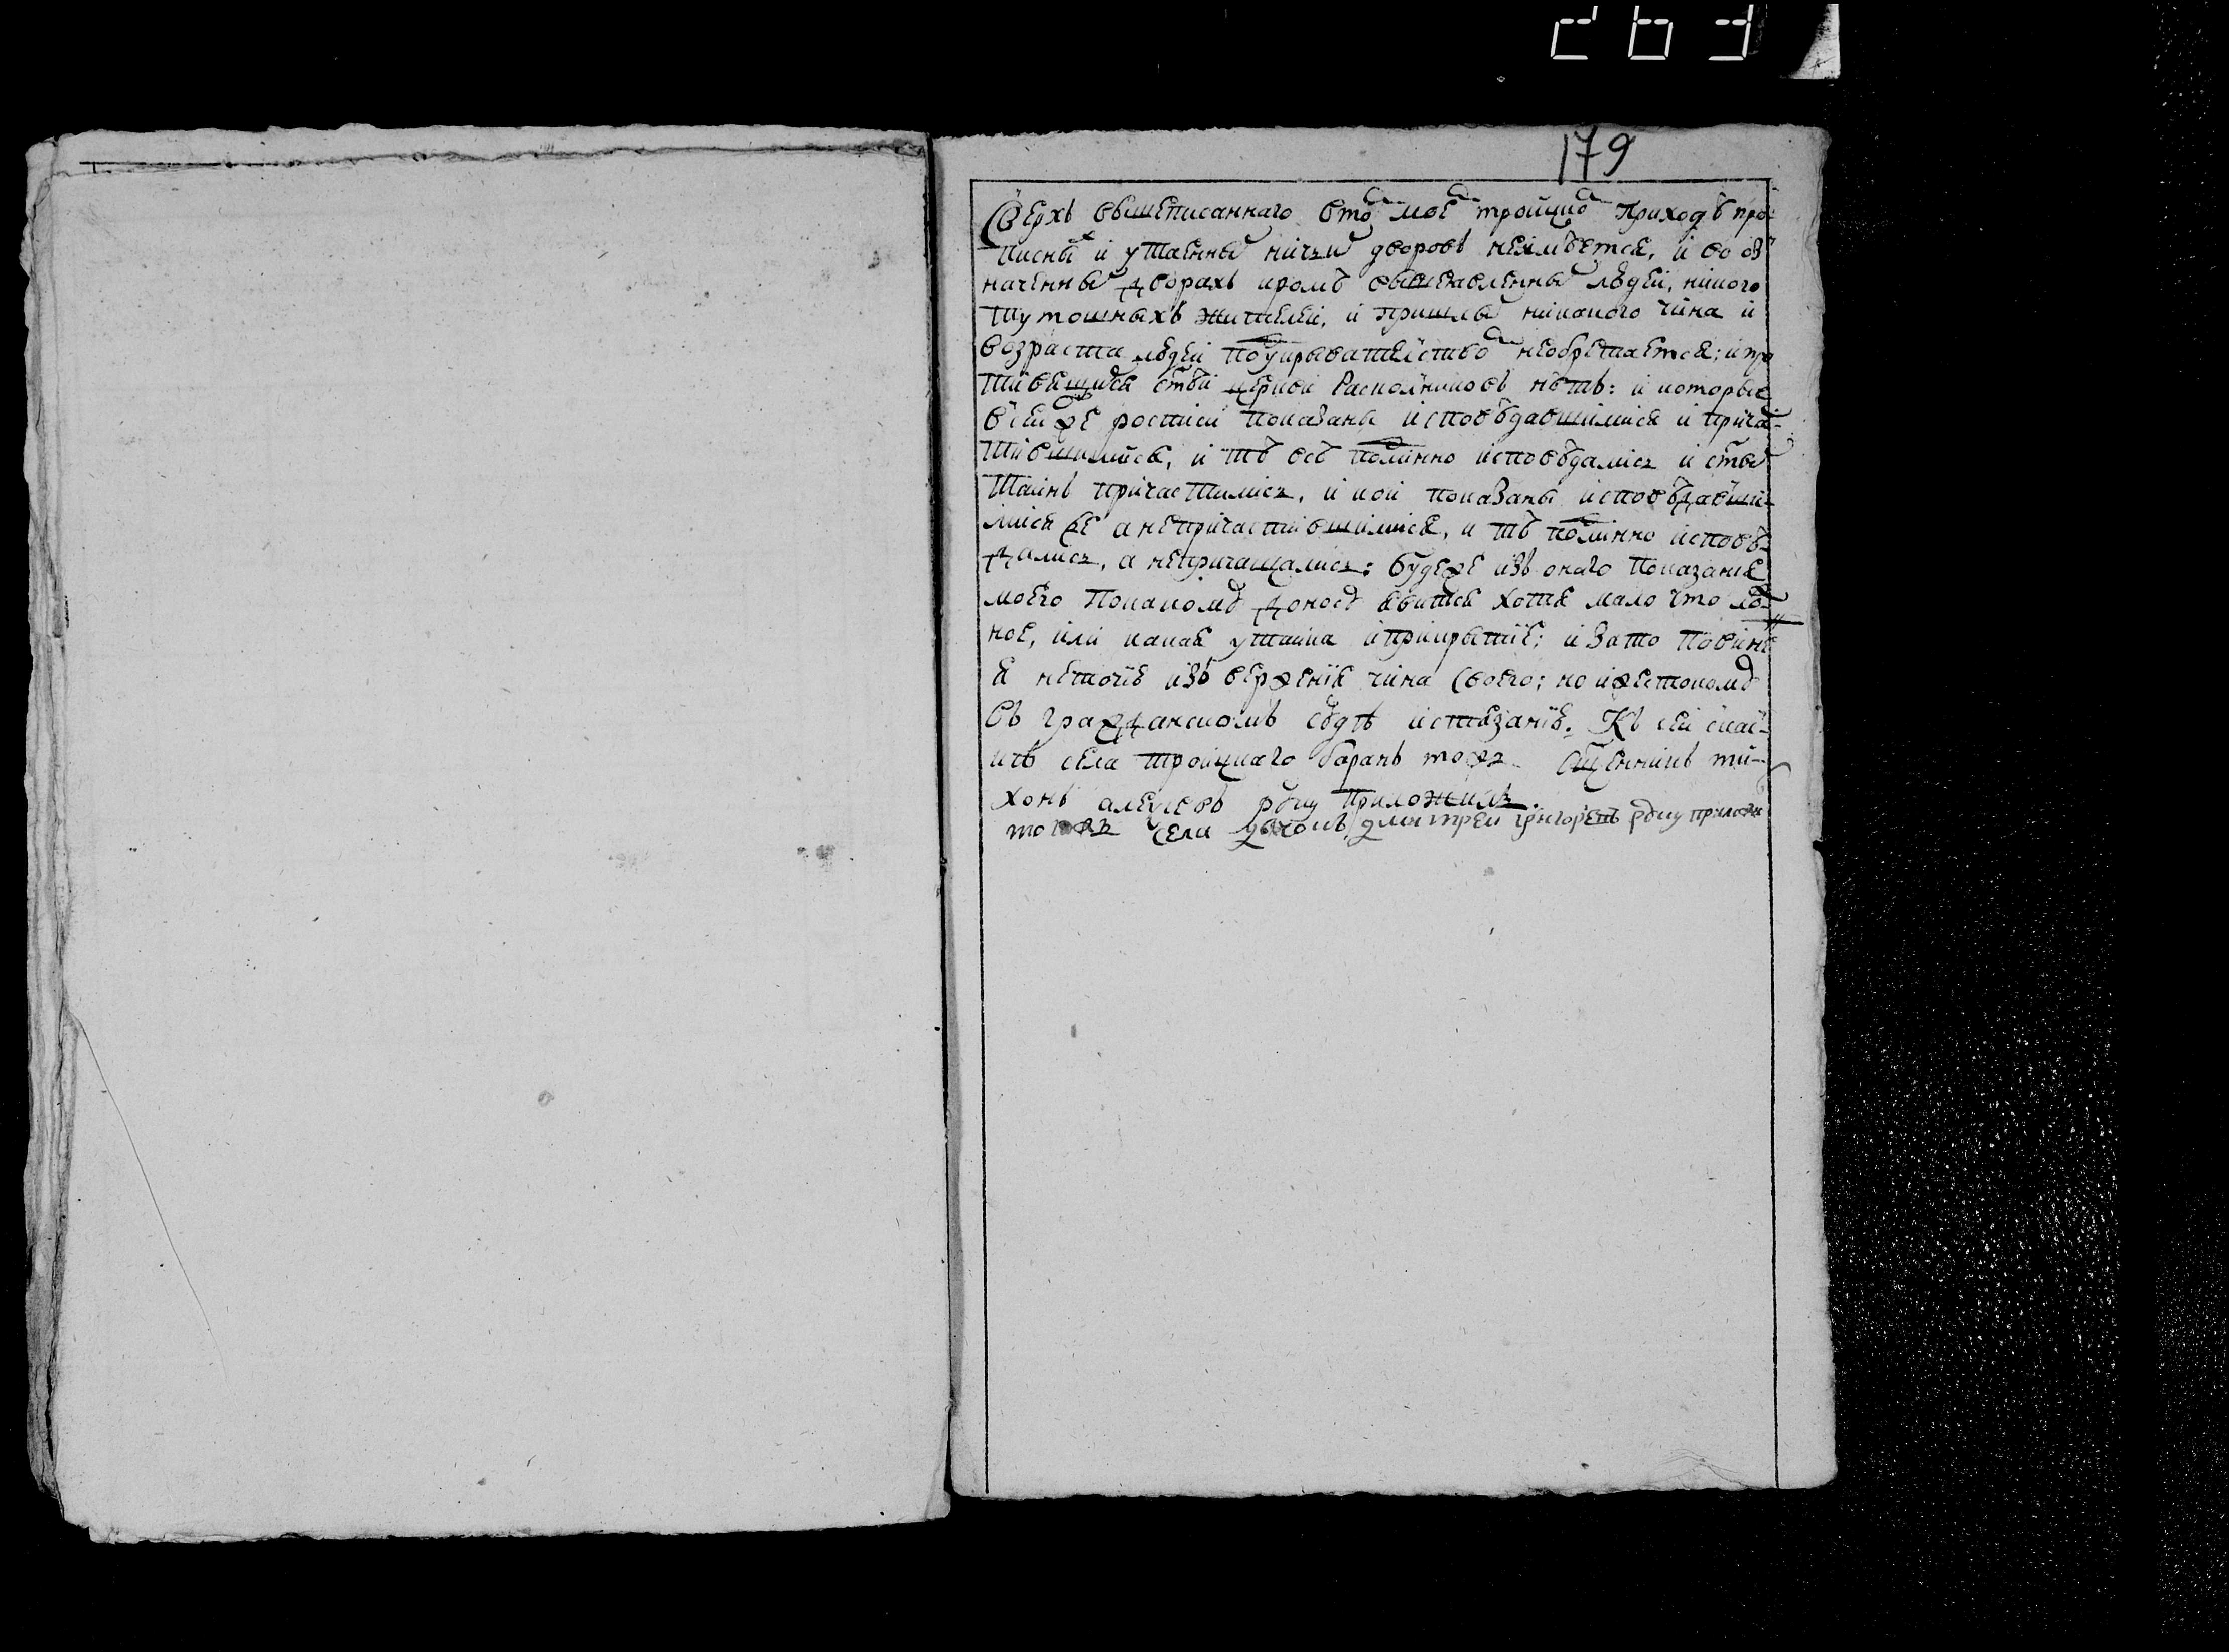 263
179
Сверхъ вышеписаннаго в то моє троицко приходѣ про-
писны и утаенны ничьи дворовъ неимѣется, и во оз
наченны дворахъ кромѣ вышеявленны людей, никого
тутошныхъ жителей, и пришлы никакого чина и
возраста людей по укрывателство необретается: и про
тивящихся стѣй церкви раскольниковъ нѣтъ: и которые
в сеи же росписи показаны исповѣдавшимися и прича-
тившимися, и тѣ всѣ полинно исповѣдались и сты
таинъ причастились, и кои показаны исповѣдавши-
мися же а непричастившимися, и тѣ полинно исповѣ-
дались, а непричащались: буде же изъ онаго показания
моего по какому доносу явится хотя мало что лож
ное, или какая утайка и прикрытие: и за то повинє
я неточию изъ вержения чина своего: но и жестокому
въ гражданскомъ судѣ истязанию. Къ сей скас-
кѣ села троицкаго баранъ тожъ сщенникъ ти-
хонъ алеѯѣевъ руку приложилъ.
тогожъ села дьячокъ дмитреи григоревъ руку приложи